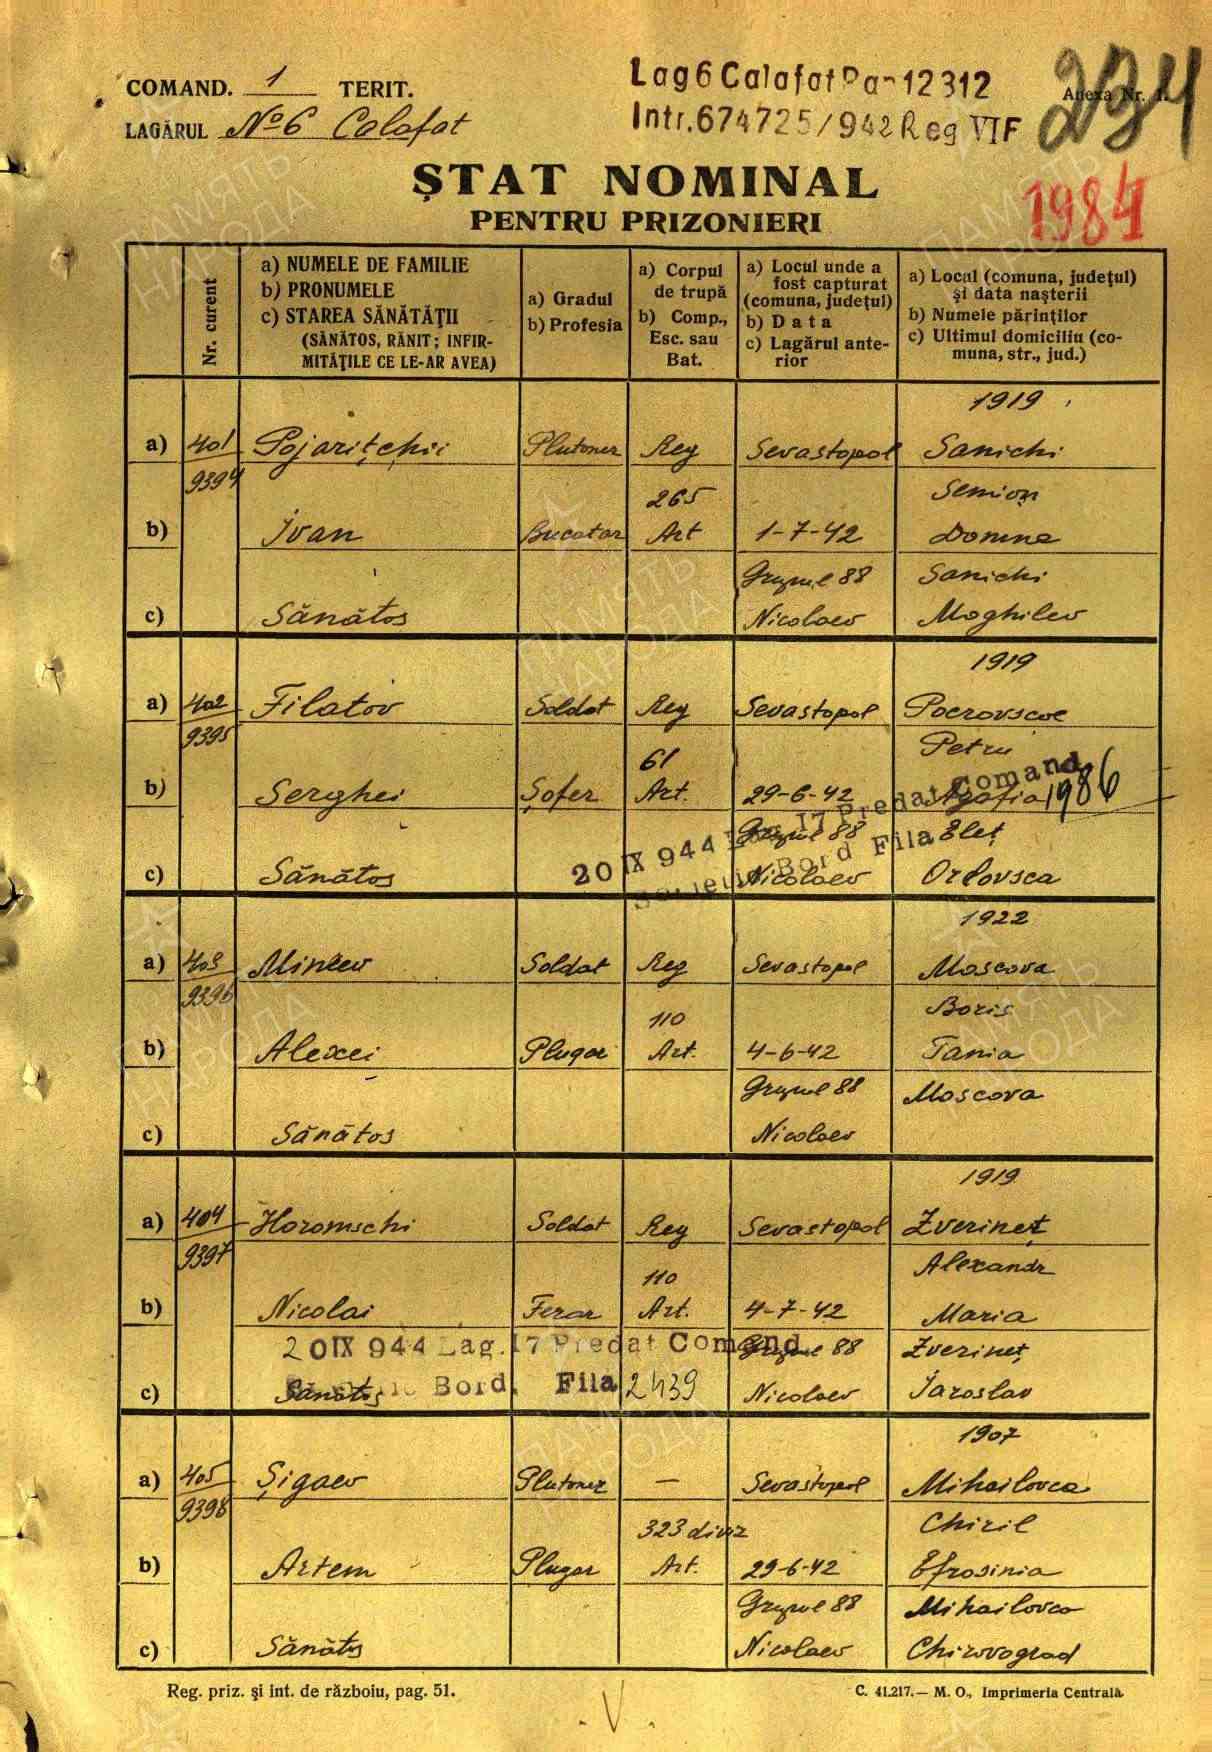 COMAND. 1 TERIT.
LAGĂRUL No 6 Calafat
Lag 6 Calafat Par 12312
Intr. 674725/942 Reg VI F
Anexa Nr. 1.
234
ȘTAT NOMINAL
PENTRU PRIZONIERI
1984
Nr. curent
a) NUMELE DE FAMILIE
b) PRONUMELE
c) STAREA SĂNĂTĂŢII
(SĂNĂTOS, RĂNIT; INFIR-
MITĂŢILE CE LE-AR AVEA)
a) Gradul
b) Profesia
a) Corpul
de trupă
b) Comp.,
Esc. sau
Bat.
a) Locul unde a
fost capturat
(comuna, judeţul)
b) Data
c) Lagărul ante-
rior
a) Local (comuna, judeţul)
şi data naşterii
b) Numele părinţilor
c) Ultimul domiciliu (co-
muna, str., jud.)
1919
a) 401 Pojarițchii Plutoner Reg Sevastopol Sanichi
9394 265 Semion
b) Ivan Bucatar Art 1-7-42 Domna
Grupul 88 Sanichi
c) Sănătos Nicolaev Moghilev
1919
a) 402 Filatov Soldat Reg Sevastopol Pocrovscoe
9395 61 Petru
b) Serghei Șofer Art. 29-6-42 Agafia 1986
Grupul 88 Eleț
20 IX 944 Lag. 17 Predat Comand
Sovietic Bord Fila
c) Sănătos Nicolaev Orlovsca
1922
a) 403 Mineev Soldat Reg Sevastopol Moscova
9396 110 Boris
b) Alexei Plugar Art. 4-6-42 Tania
Grupul 88 Moscova
c) Sănătos Nicolaev
1919
a) 404 Horomschi Soldat Reg Sevastopol Zverineț
9397 110 Alexandr
b) Nicolai Ferar Art. 4-7-42 Maria
20 IX 944 Lag. 17 Predat Comand
Grupul 88 Zverineț
Sovietic Bord. Fila 2439
c) Sănătos Nicolaev Iaroslav
1907
a) 405 Șigaev Plutoner — Sevastopol Mihailovca
9398 323 diviz Chiril
b) Artem Plugar Art. 29-6-42 Efrosinia
Grupul 88 Mihailovca
c) Sănătos Nicolaev Chirovograd
Reg. priz. şi int. de războiu, pag. 51.
C. 41.217.— M. O., Imprimeria Centrală
V
ПАМЯТЬ
НАРОДА